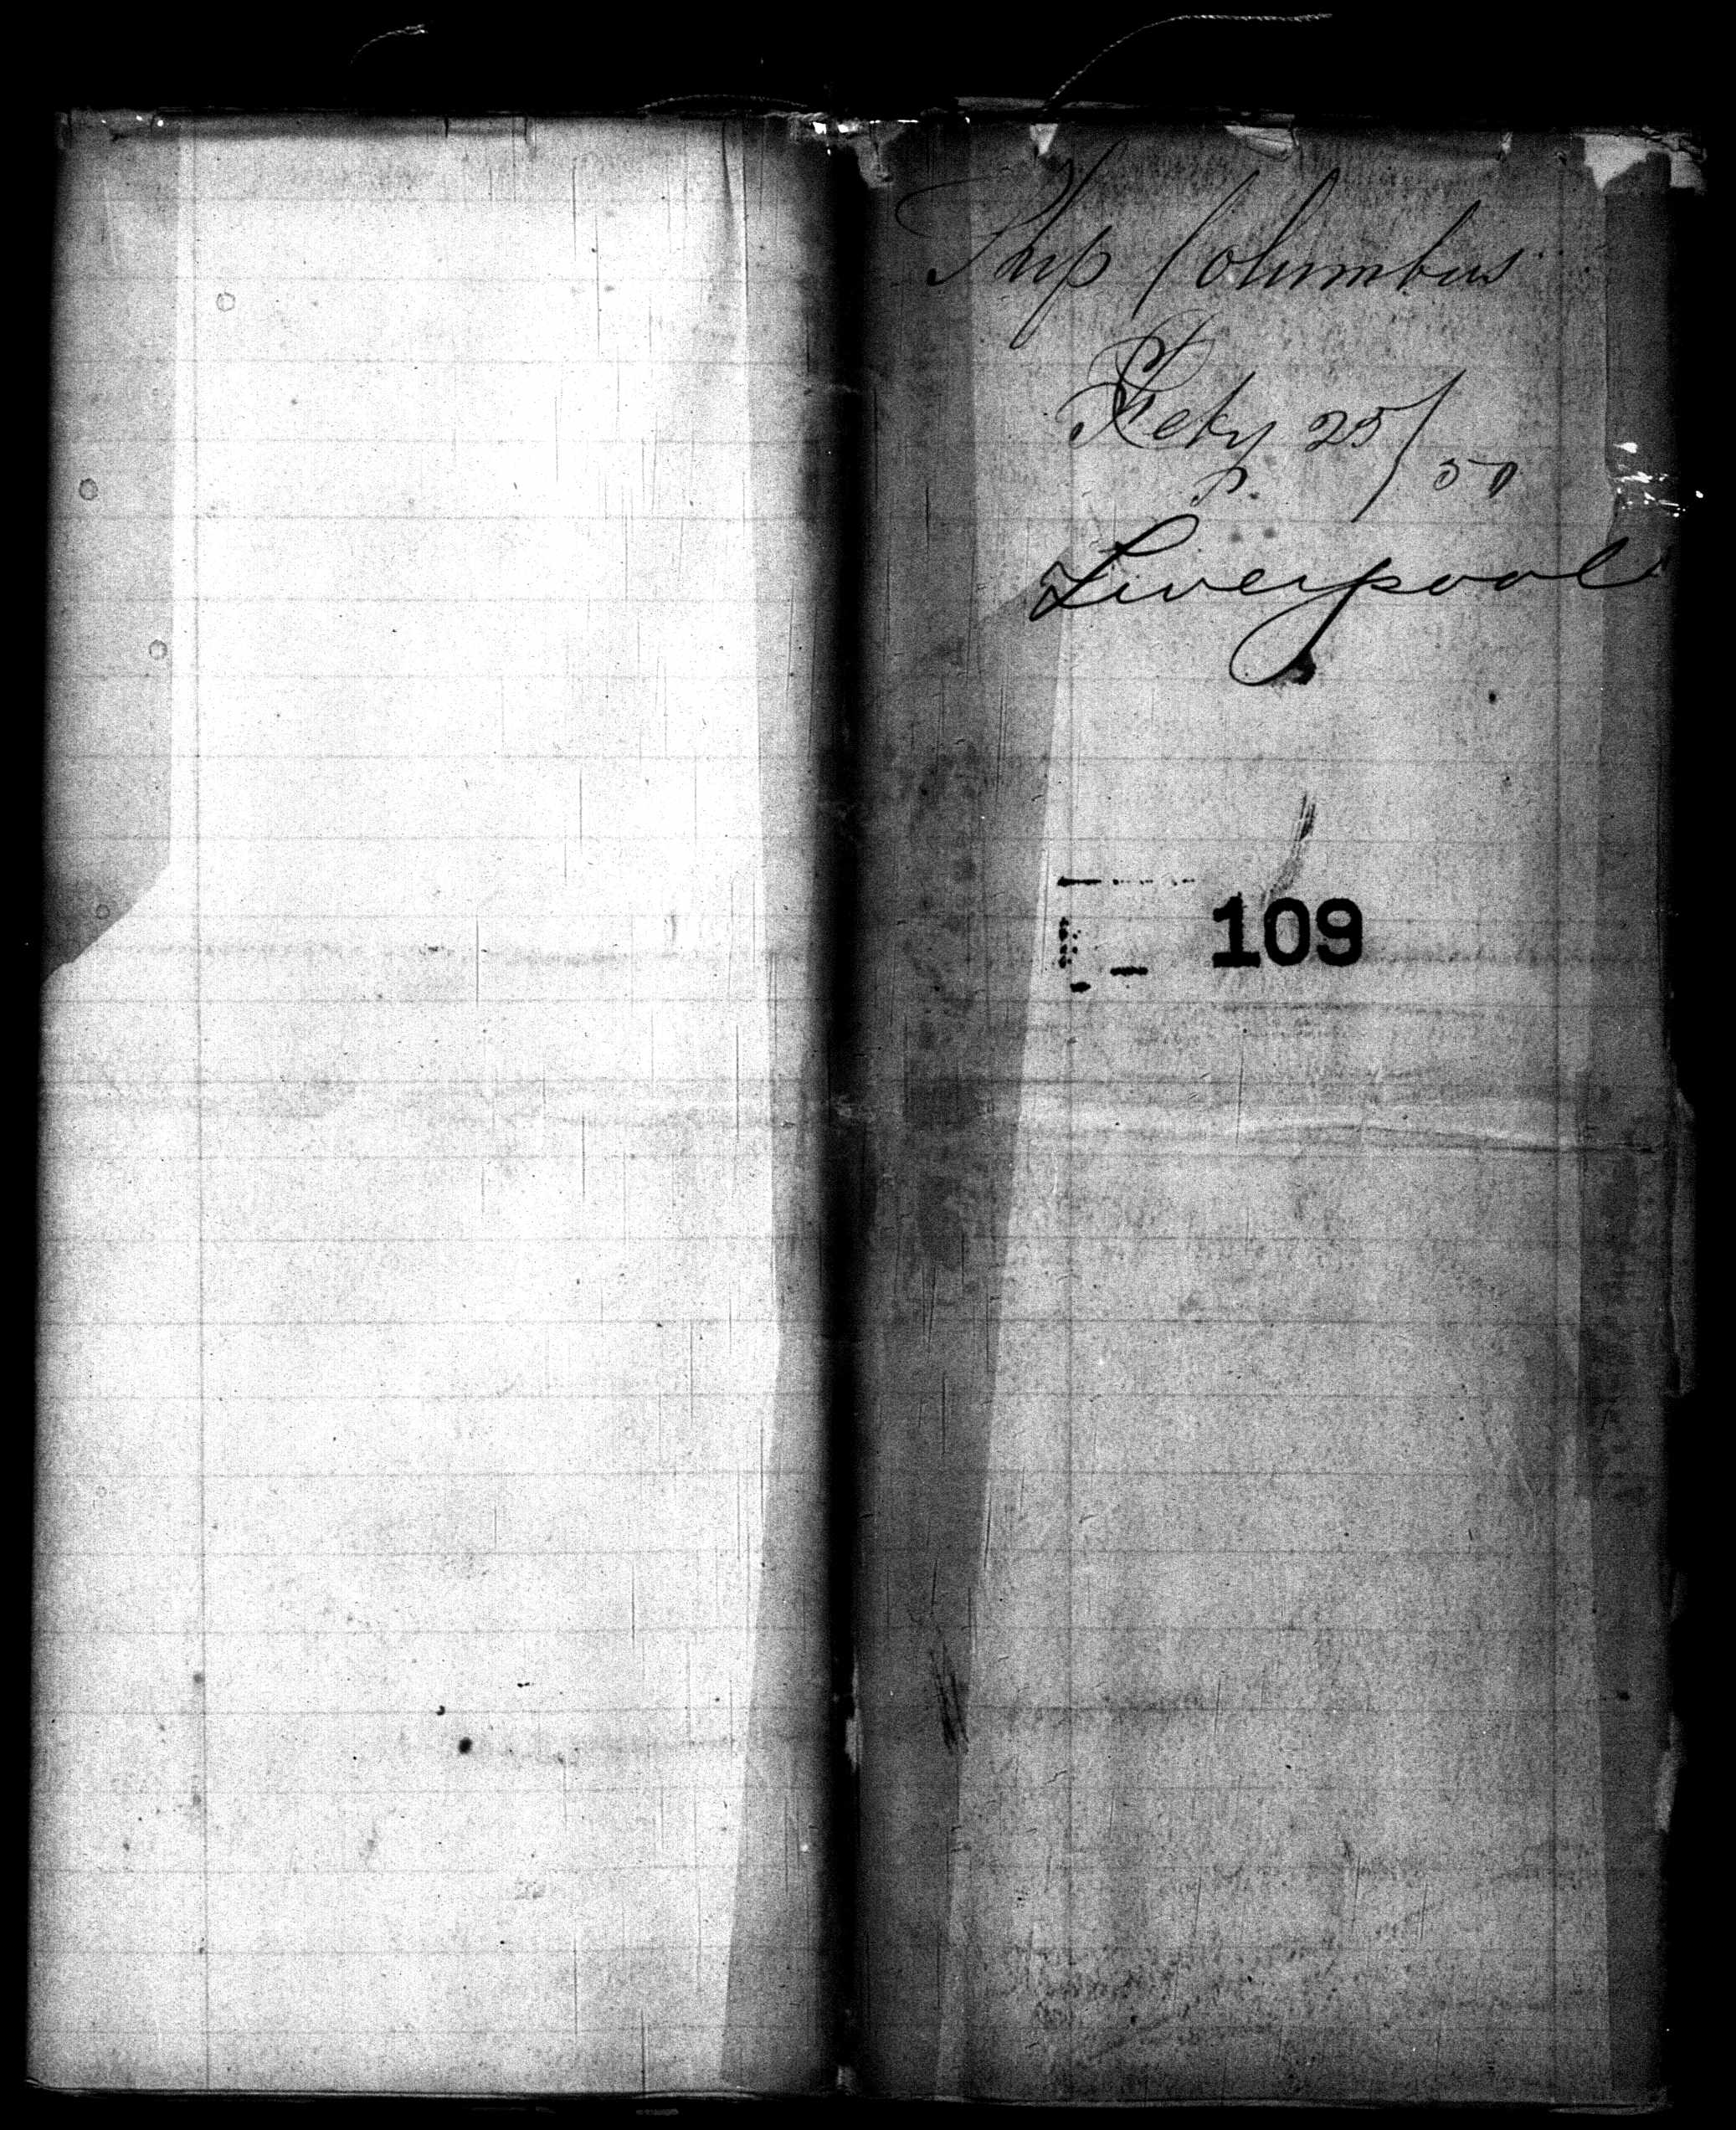 Ship Columbus
Feby 25/50
Liverpool
109